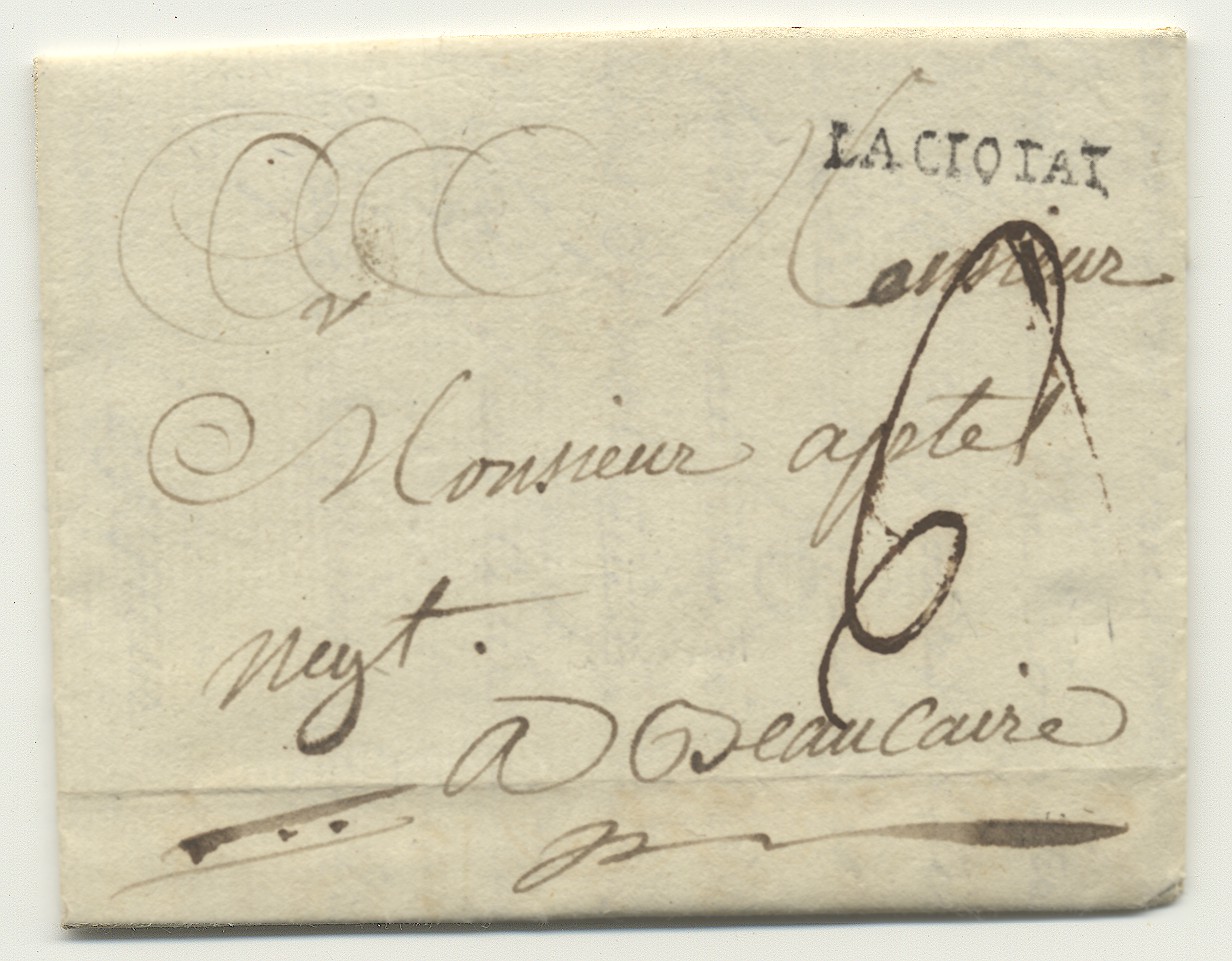 LACIOTAT
Monsieur
6
Monsieur aptel
negt.
a Beaucaire